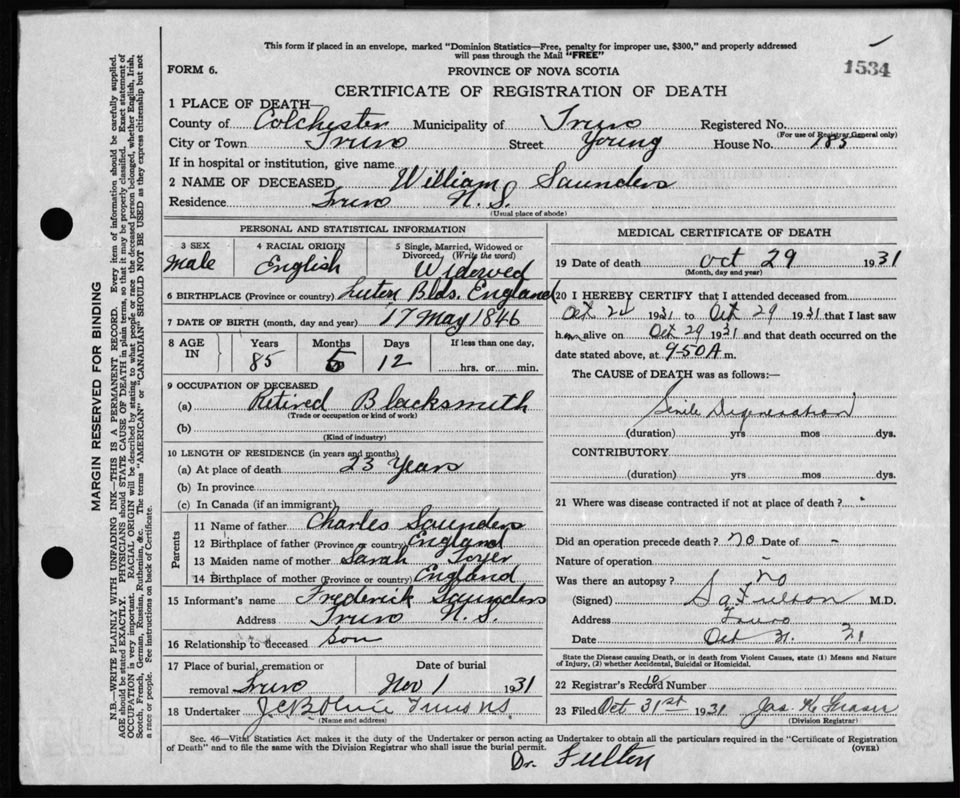 This form if placed in an envelope, marked "Dominion Statistics—Free, penalty for improper use, $300," and properly addressed
will pass through the Mail "FREE"
FORM 6.
PROVINCE OF NOVA SCOTIA
1534
CERTIFICATE OF REGISTRATION OF DEATH
1 PLACE OF DEATH—
County of Colchester Municipality of Truro Registered No.
(For use of Registrar General only)
City or Town Truro Street Young House No. 185
If in hospital or institution, give name
2 NAME OF DECEASED William S. Saunders
Residence Truro N.S.
(Usual place of abode)
PERSONAL AND STATISTICAL INFORMATION
3 SEX Male
4 RACIAL ORIGIN English
5 Single, Married, Widowed or Divorced (Write the word) Widowed
6 BIRTHPLACE (Province or country) Luton Bds. England
7 DATE OF BIRTH (month, day and year) 17 May 1846
8 AGE IN Years 85 Months 5 Days 12 If less than one day, hrs. or min.
9 OCCUPATION OF DECEASED
(a) Retired Blacksmith
(Trade or occupation or kind of work)
(b)
(Kind of industry)
10 LENGTH OF RESIDENCE (in years and months)
(a) At place of death 23 Years
(b) In province
(c) In Canada (if an immigrant)
Parents
11 Name of father Charles Saunders
12 Birthplace of father (Province or country) England
13 Maiden name of mother Sarah
14 Birthplace of mother (Province or country) England
15 Informant's name Frederick Saunders
Address Truro N.S.
16 Relationship to deceased Son
17 Place of burial, cremation or removal Truro
Date of burial Nov 1 1931
18 Undertaker Truro NS
(Name and address)
MEDICAL CERTIFICATE OF DEATH
19 Date of death Oct 29 1931
(Month, day and year)
20 I HEREBY CERTIFY that I attended deceased from
Oct 24 1931 to Oct 29 1931 that I last saw
him alive on Oct 29 1931 and that death occurred on the
date stated above, at 9-50 A m.
The CAUSE of DEATH was as follows:—
Senile Degeneration
(duration) yrs mos dys.
CONTRIBUTORY
(duration) yrs mos dys.
21 Where was disease contracted if not at place of death? -
Did an operation precede death? no Date of -
Nature of operation -
Was there an autopsy? no
(Signed) Fulton M.D.
Address Truro
Date Oct 31. 31
State the Disease causing Death, or in death from Violent Causes, state (1) Means and Nature
of Injury, (2) whether Accidental, Suicidal or Homicidal.
22 Registrar's Record Number
23 Filed Oct 31st 1931 Jas. K. Fraser
(Division Registrar)
Sec. 46—Vital Statistics Act makes it the duty of the Undertaker or person acting as Undertaker to obtain all the particulars required in the "Certificate of Registration
of Death" and to file the same with the Division Registrar who shall issue the burial permit. (OVER)
Dr. Fulton
MARGIN RESERVED FOR BINDING
N.B.—WRITE PLAINLY WITH UNFADING INK—THIS IS A PERMANENT RECORD. Every item of information should be carefully supplied.
AGE should be stated EXACTLY. PHYSICIANS should STATE CAUSE OF DEATH in plain terms, so that it may be properly classified. Exact statement of
OCCUPATION is very important. RACIAL ORIGIN will be described by stating to what people or race the deceased person belonged, whether English, Irish,
Scotch, French, German, Russian, Ruthenian, &c. The terms "AMERICAN" or "CANADIAN" SHOULD NOT BE USED as they express citizenship but not
a race or people. See instructions on back of Certificate.